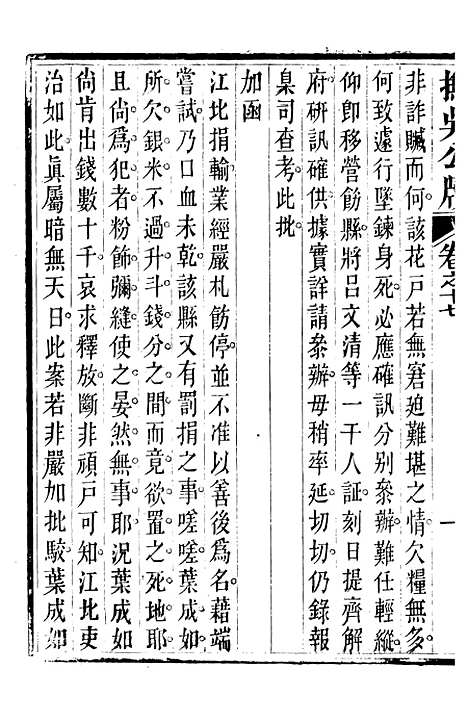 撫吳公牘 卷之十七 一
非詐贓而何該花戶若無窘迫難堪之情欠糧無多
何致遽行墜鍊身死必應確訊分別叅辦難任輕縱
仰即移營飭縣將呂文清等一干人証刻日提齊解
府研訊確供據實詳請叅辦毋稍率延切切仍錄報
臬司查考此批
加函
江北捐輸業經嚴札飭停並不准以善後為名藉端
嘗試乃口血未乾該縣又有罰捐之事嗟嗟葉成如
所欠銀米不過升斗錢分之間而竟欲置之死地耶
且尚為犯者粉飾彌縫使之晏然無事耶況葉成如
尚肯出錢數十千哀求釋放斷非頑戶可知江北吏
治如此真屬暗無天日此案若非嚴加批駮葉成如